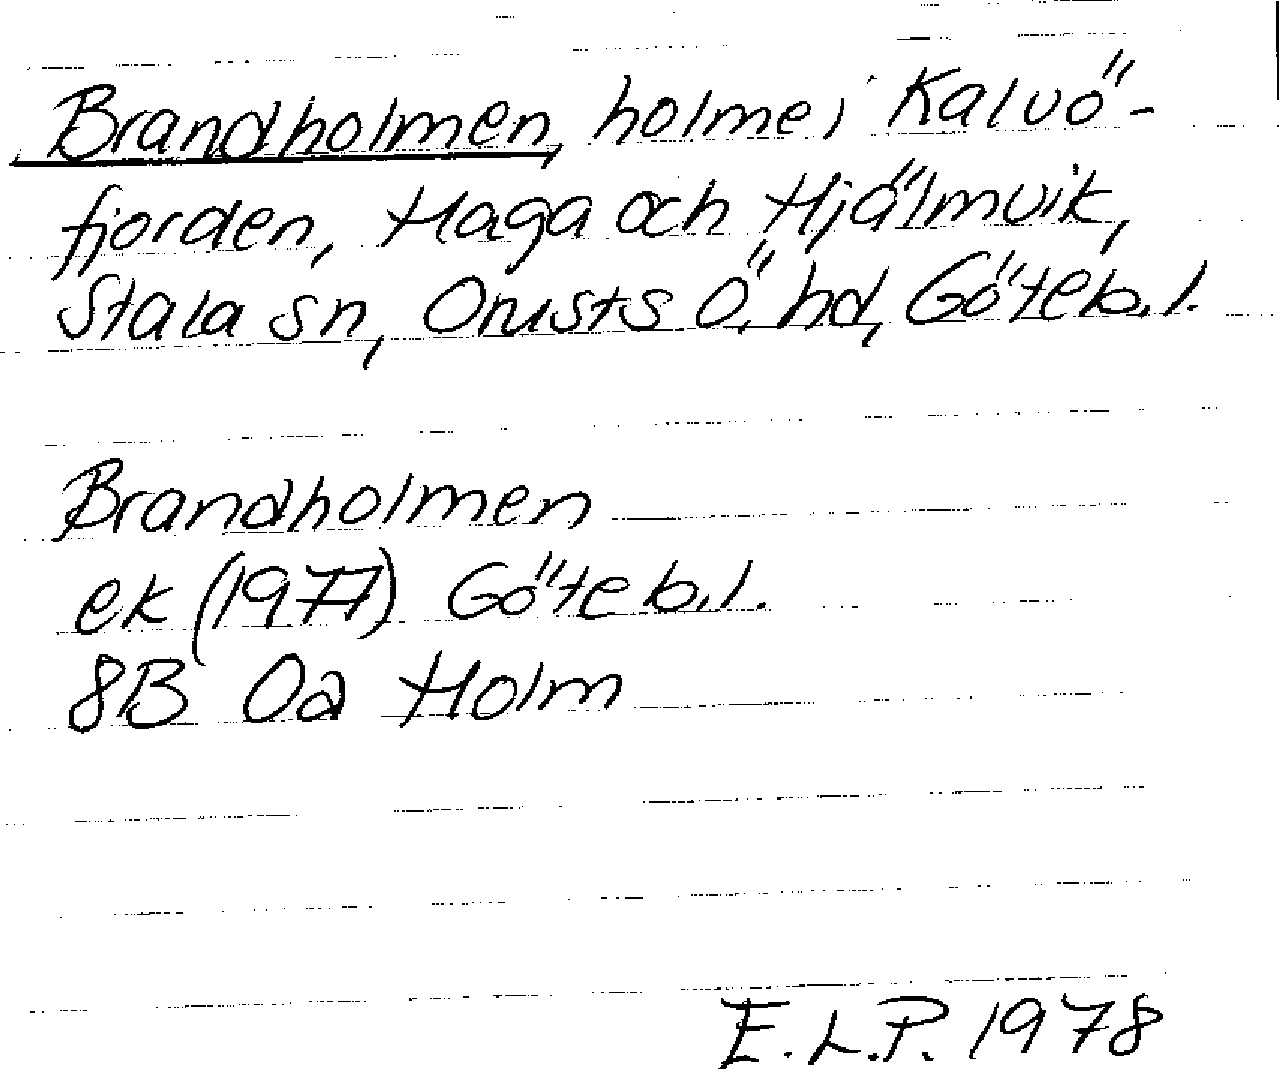 Brandholmen, holme i Kalvö-
fjorden, Haga och Hjälmvik,
Stala sn, Orusts Ö. hd, Göteb. l.
Brandholmen
ek (1977) Göteb. l.
8B 0a Holm
E. L. P. 1978